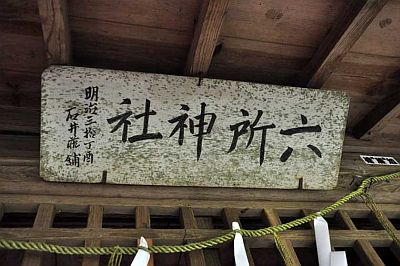 六所神社
明治三拾丁酉
石井